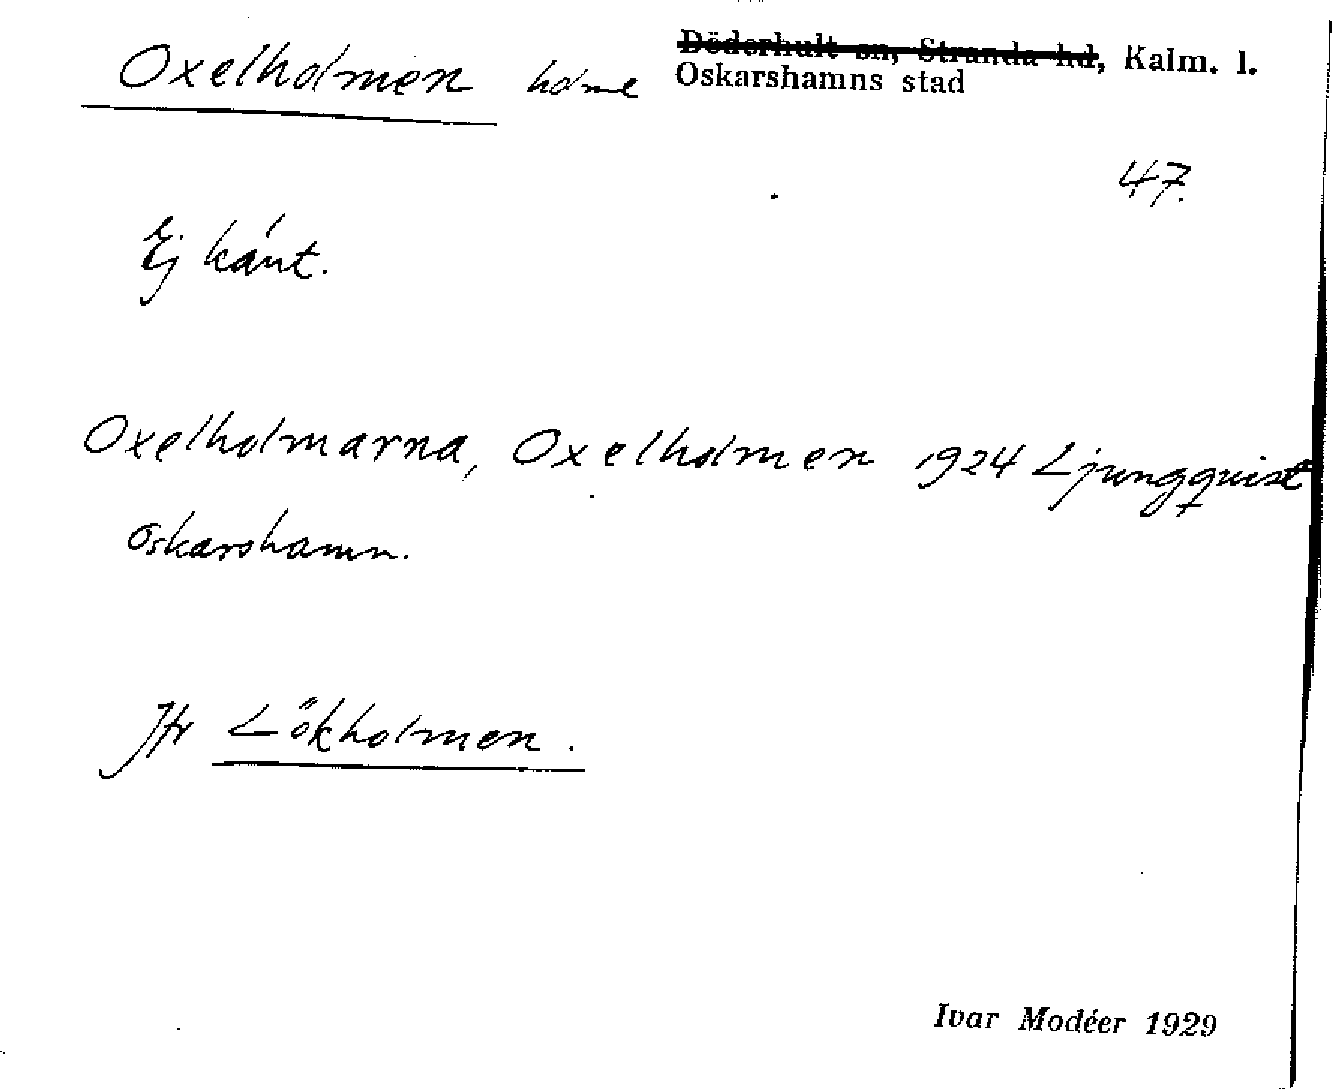 Oxelholmen holme Döderhult sn, Stranda hd, Kalm. l.
Oskarshamns stad
47.
Ej känt.
Oxelholmarna, Oxelholmen 1924 Ljungquist
Oskarshamn.
Jfr Lökholmen.
Ivar Modéer 1929